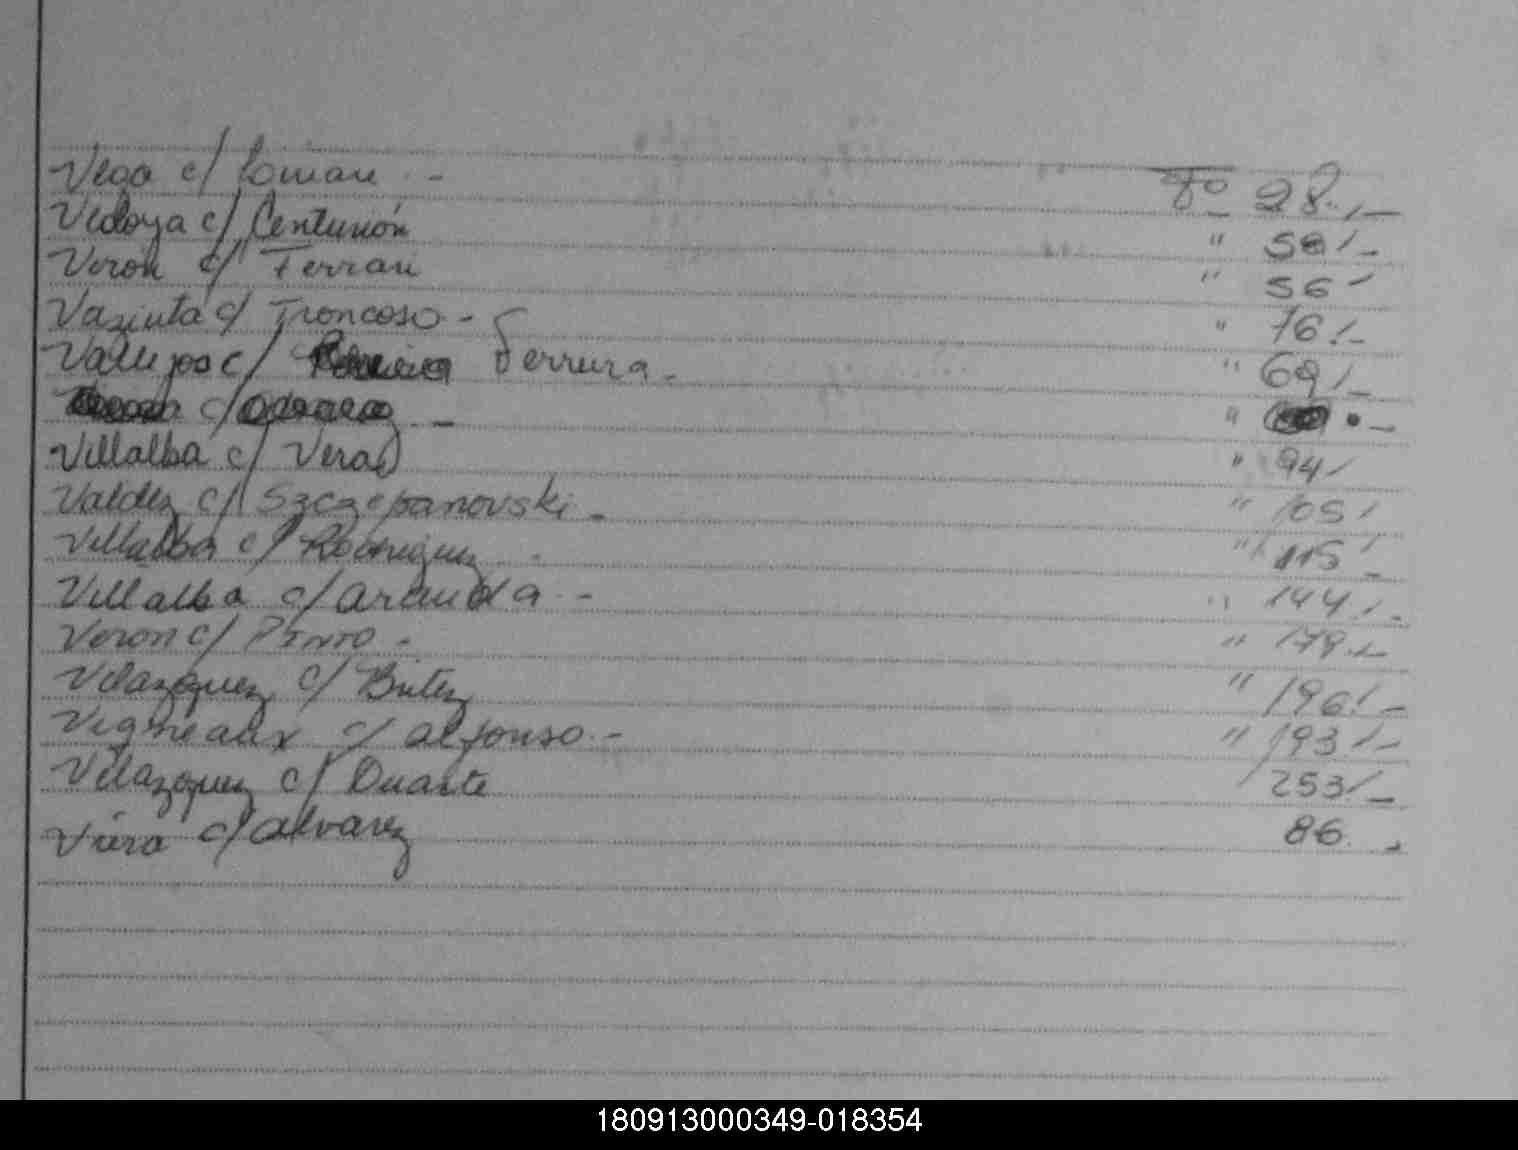 Vega c/ Roman . - Fº 28.,-
Vedoya c/ Centurión " 50/-
Veron c/ Ferrari " 56-
Vazinta c/ Troncoso - " 76/-
Vallejos c/ Ferreira - " 69/-
c/ - " . -
Villalba c/ Vera " 94-
Valdez c/ Szczepanovski - " 105/
Villalba c/ Rodriguez - " 115/-
Villalba c/ Aranda . - " 144./-
Veron c/ PINTO - " 179.-
Velazquez c/ Britez " 196/-
Vigneaux c/ alfonso. - " 193/-
Velazquez c/ Duarte 253/-
Viera c/ alvarez 86. -
180913000349-018354